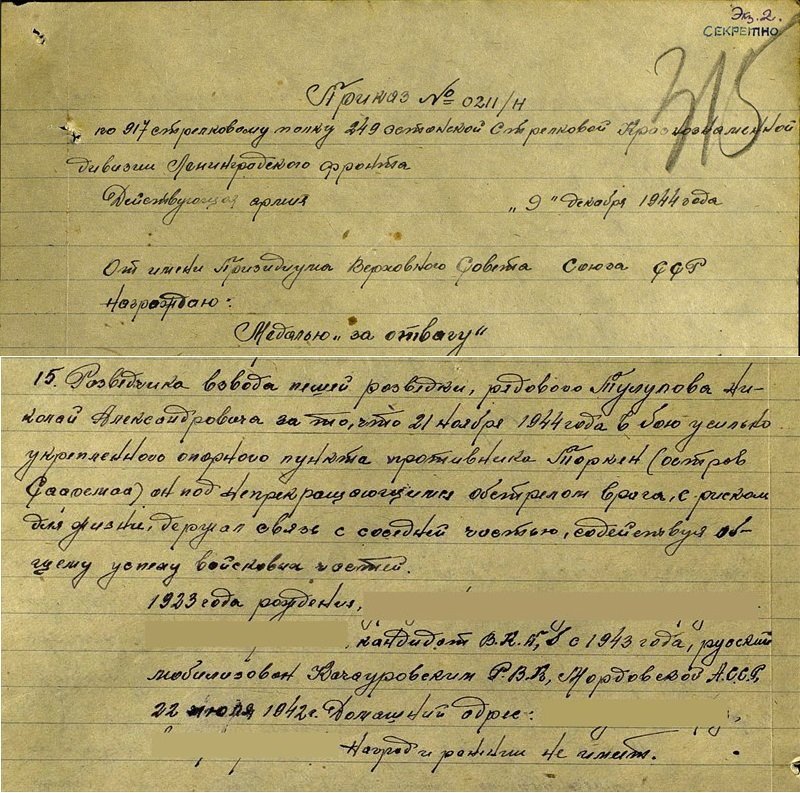 Экз. 2.
СЕКРЕТНО
315
Приказ № 0211/н
по 917 стрелковому полку 249 эстонской Стрелковой Краснознаменной
дивизии Ленинградского фронта
Действующая армия „9" декабря 1944 года
От имени Призидиума Верховного Совета Союза ССР
награждаю:
Медалью „за отвагу"
15. Разведчика взвода пешей розведки, рядового Тулупова Ни-
колай Александровича за то, что 21 ноября 1944 года в бою у сильно
укрепленного опорного пункта противника Торкен (остров
Сааремаа) он под непрекращающимся обстрелом врага, с риском
для жизни, держал связь с соседней частью, содействуя об-
щему успеху войсковых частей.
1923 года рождения,
кандидат В.К.П,б с 1943 года, русский
мобилизован Качауровским Р.В.К, Мордовской А.С.С.Р,
22 июля 1942 г. Домашний адрес:
Наград и ранении не имеет.